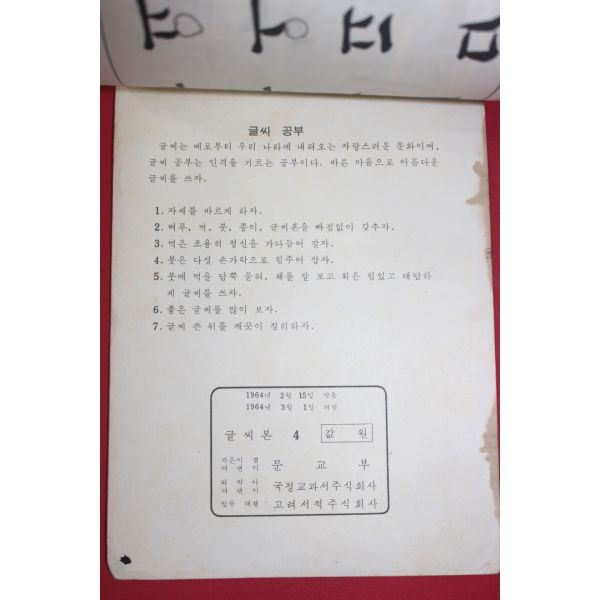 글씨 공부
글씨는 예로부터 우리 나라에 내려오는 자랑스러운 문화이며,
글씨 공부는 인격을 기르는 공부이다. 바른 마음으로 아름다운
글씨를 쓰자.
1. 자세를 바르게 하자.
2. 벼루, 먹, 붓, 종이, 글씨본을 빠짐없이 갖추자.
3. 먹은 조용히 정신을 가다듬어 갈자.
4. 붓은 다섯 손가락으로 힘주어 잡자.
5. 붓에 먹을 담뿍 묻혀, 체를 잘 보고 획은 힘있고 대담하
게 글씨를 쓰자.
6. 좋은 글씨를 많이 보자.
7. 글씨 쓴 뒤를 깨끗이 정리하자.
1964년 2월 15일 박음
1964년 3월 1일 펴냄
글씨본 4 값 원
지은이 겸
펴낸이 문교부
되박아
펴낸이 국정교과서주식회사
업무 대행 고려서적주식회사